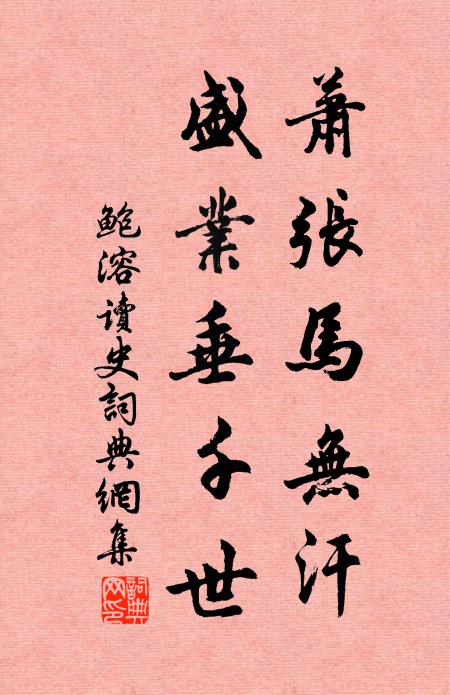 蕭張馬無汗
盛業垂千世
鮑溶讀史詞典網集
詞典網印